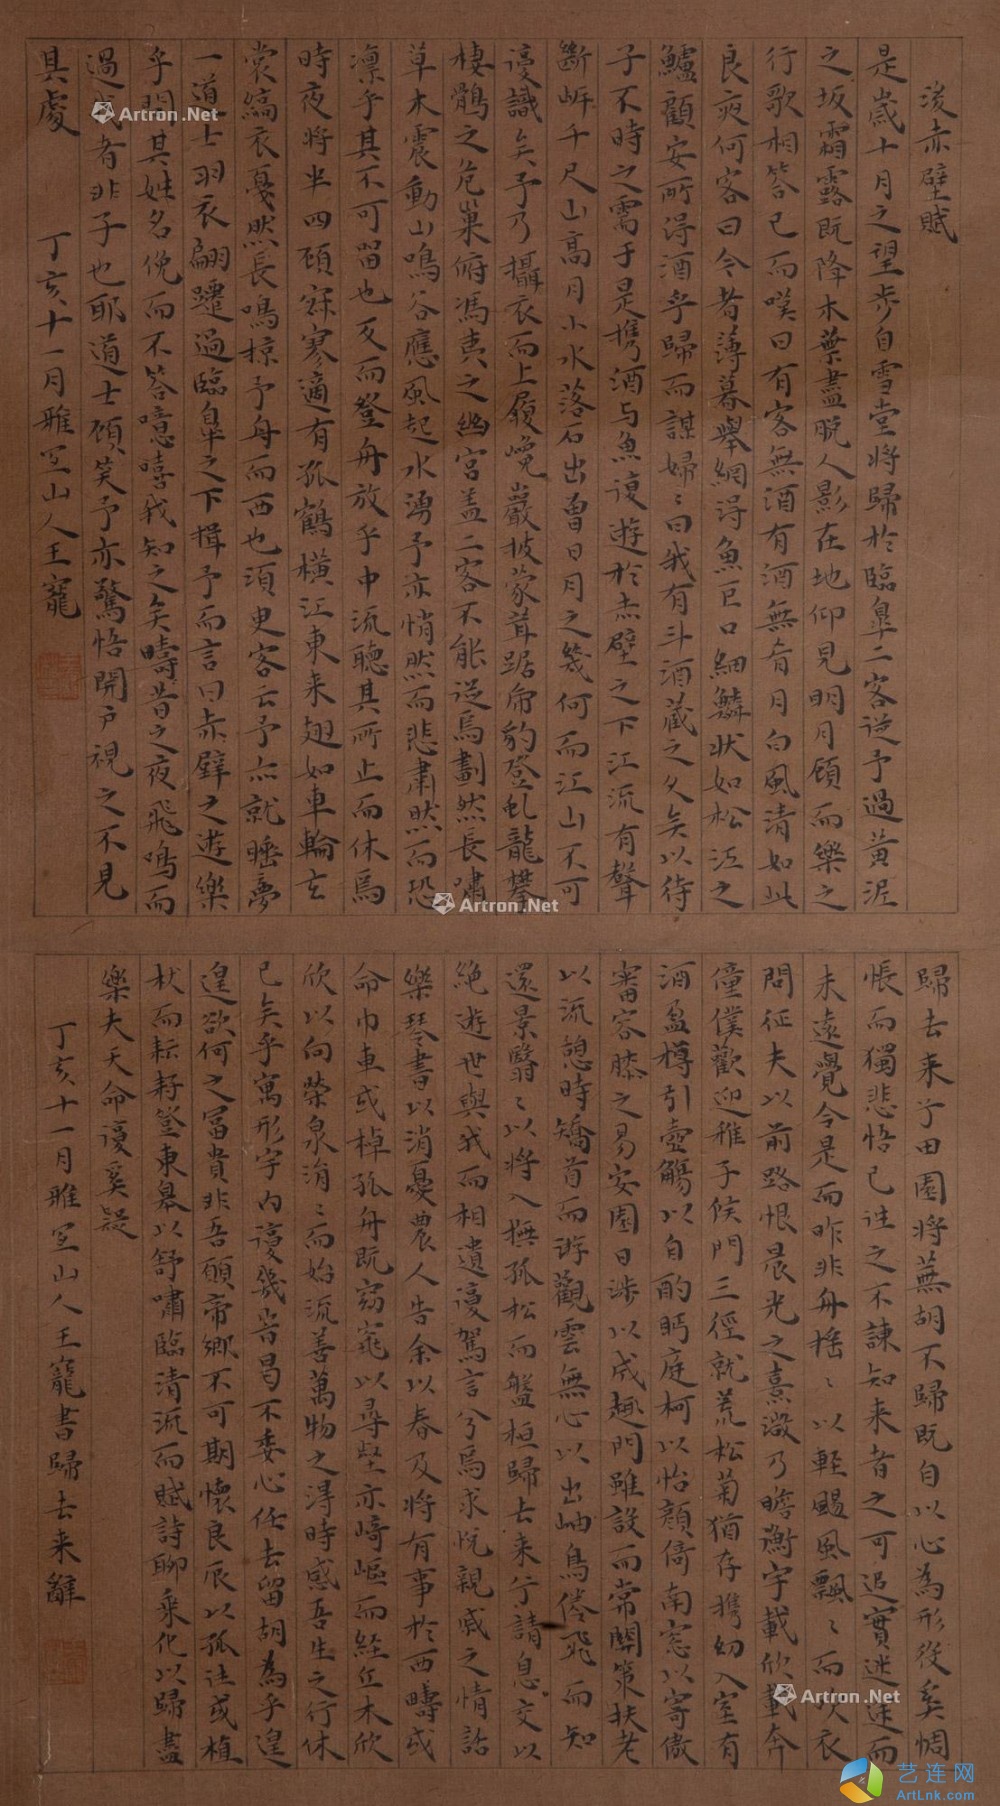 後赤壁賦
是歲十月之望步自雪堂將歸於臨皐二客從予過黄泥
之坂霜露既降木葉盡脱人影在地仰見明月顧而樂之
行歌相答已而嘆曰有客無酒有酒無肴月白風清如此
良夜何客曰今者薄暮舉網得魚巨口細鱗狀如松江之
鱸顧安所得酒乎歸而謀婦〻曰我有斗酒藏之久矣以待
子不時之需于是携酒与魚復遊於赤壁之下江流有聲
斷岸千尺山高月小水落石出曽日月之幾何而江山不可
復識矣予乃攝衣而上履巉巖披蒙茸踞虎豹登虬龍攀
棲鶻之危巢俯馮夷之幽宮盖二客不能從焉劃然長嘯
草木震動山鳴谷應風起水湧予亦悄然而悲肅然而恐
凛乎其不可留也反而登舟放乎中流聽其所止而休焉
時夜將半四顧寂寥適有孤鶴橫江東来翅如車輪玄
裳縞衣戛然長鳴掠予舟而西也須臾客去予亦就睡夢
一道士羽衣翩躚過臨皐之下揖予而言曰赤壁之遊樂
乎問其姓名俛而不答噫嘻我知之矣疇昔之夜飛鳴而
過我者非子也耶道士顧笑予亦驚悟開户視之不見
其處
丁亥十一月雅宜山人王寵
歸去来兮田園將蕪胡不歸既自以心為形役奚惆
悵而獨悲悟已往之不諫知来者之可追實迷途而
未遠覺今是而昨非舟摇〻以輕颺風飄〻而吹衣
問征夫以前路恨晨光之熹微乃瞻衡宇載欣載奔
僮僕歡迎稚子候門三徑就荒松菊猶存携幼入室有
酒盈樽引壺觴以自酌眄庭柯以怡顔倚南窓以寄傲
審容膝之易安園日涉以成趣門雖設而常關策扶老
以流憩時矯首而游觀雲無心以出岫鳥倦飛而知
還景翳〻以將入撫孤松而盤桓歸去来兮請息交以
絶遊世與我而相遺復駕言兮焉求悦親戚之情話
樂琴書以消憂農人告余以春及將有事於西疇或
命巾車或棹孤舟既窈窕以尋壑亦崎嶇而経丘木欣
欣以向榮泉涓〻而始流善萬物之得時感吾生之行休
已矣乎寓形宇内復幾時曷不委心任去留胡為乎遑
遑欲何之冨貴非吾願帝鄉不可期懷良辰以孤往或植
杖而耘耔登東皐以舒嘯臨清流而賦詩聊乘化以歸盡
樂夫天命復奚疑
丁亥十一月雅宜山人王寵書歸去来辭
Artron.Net
Artron.Net
Artron.Net
艺连网
ArtLnk.com